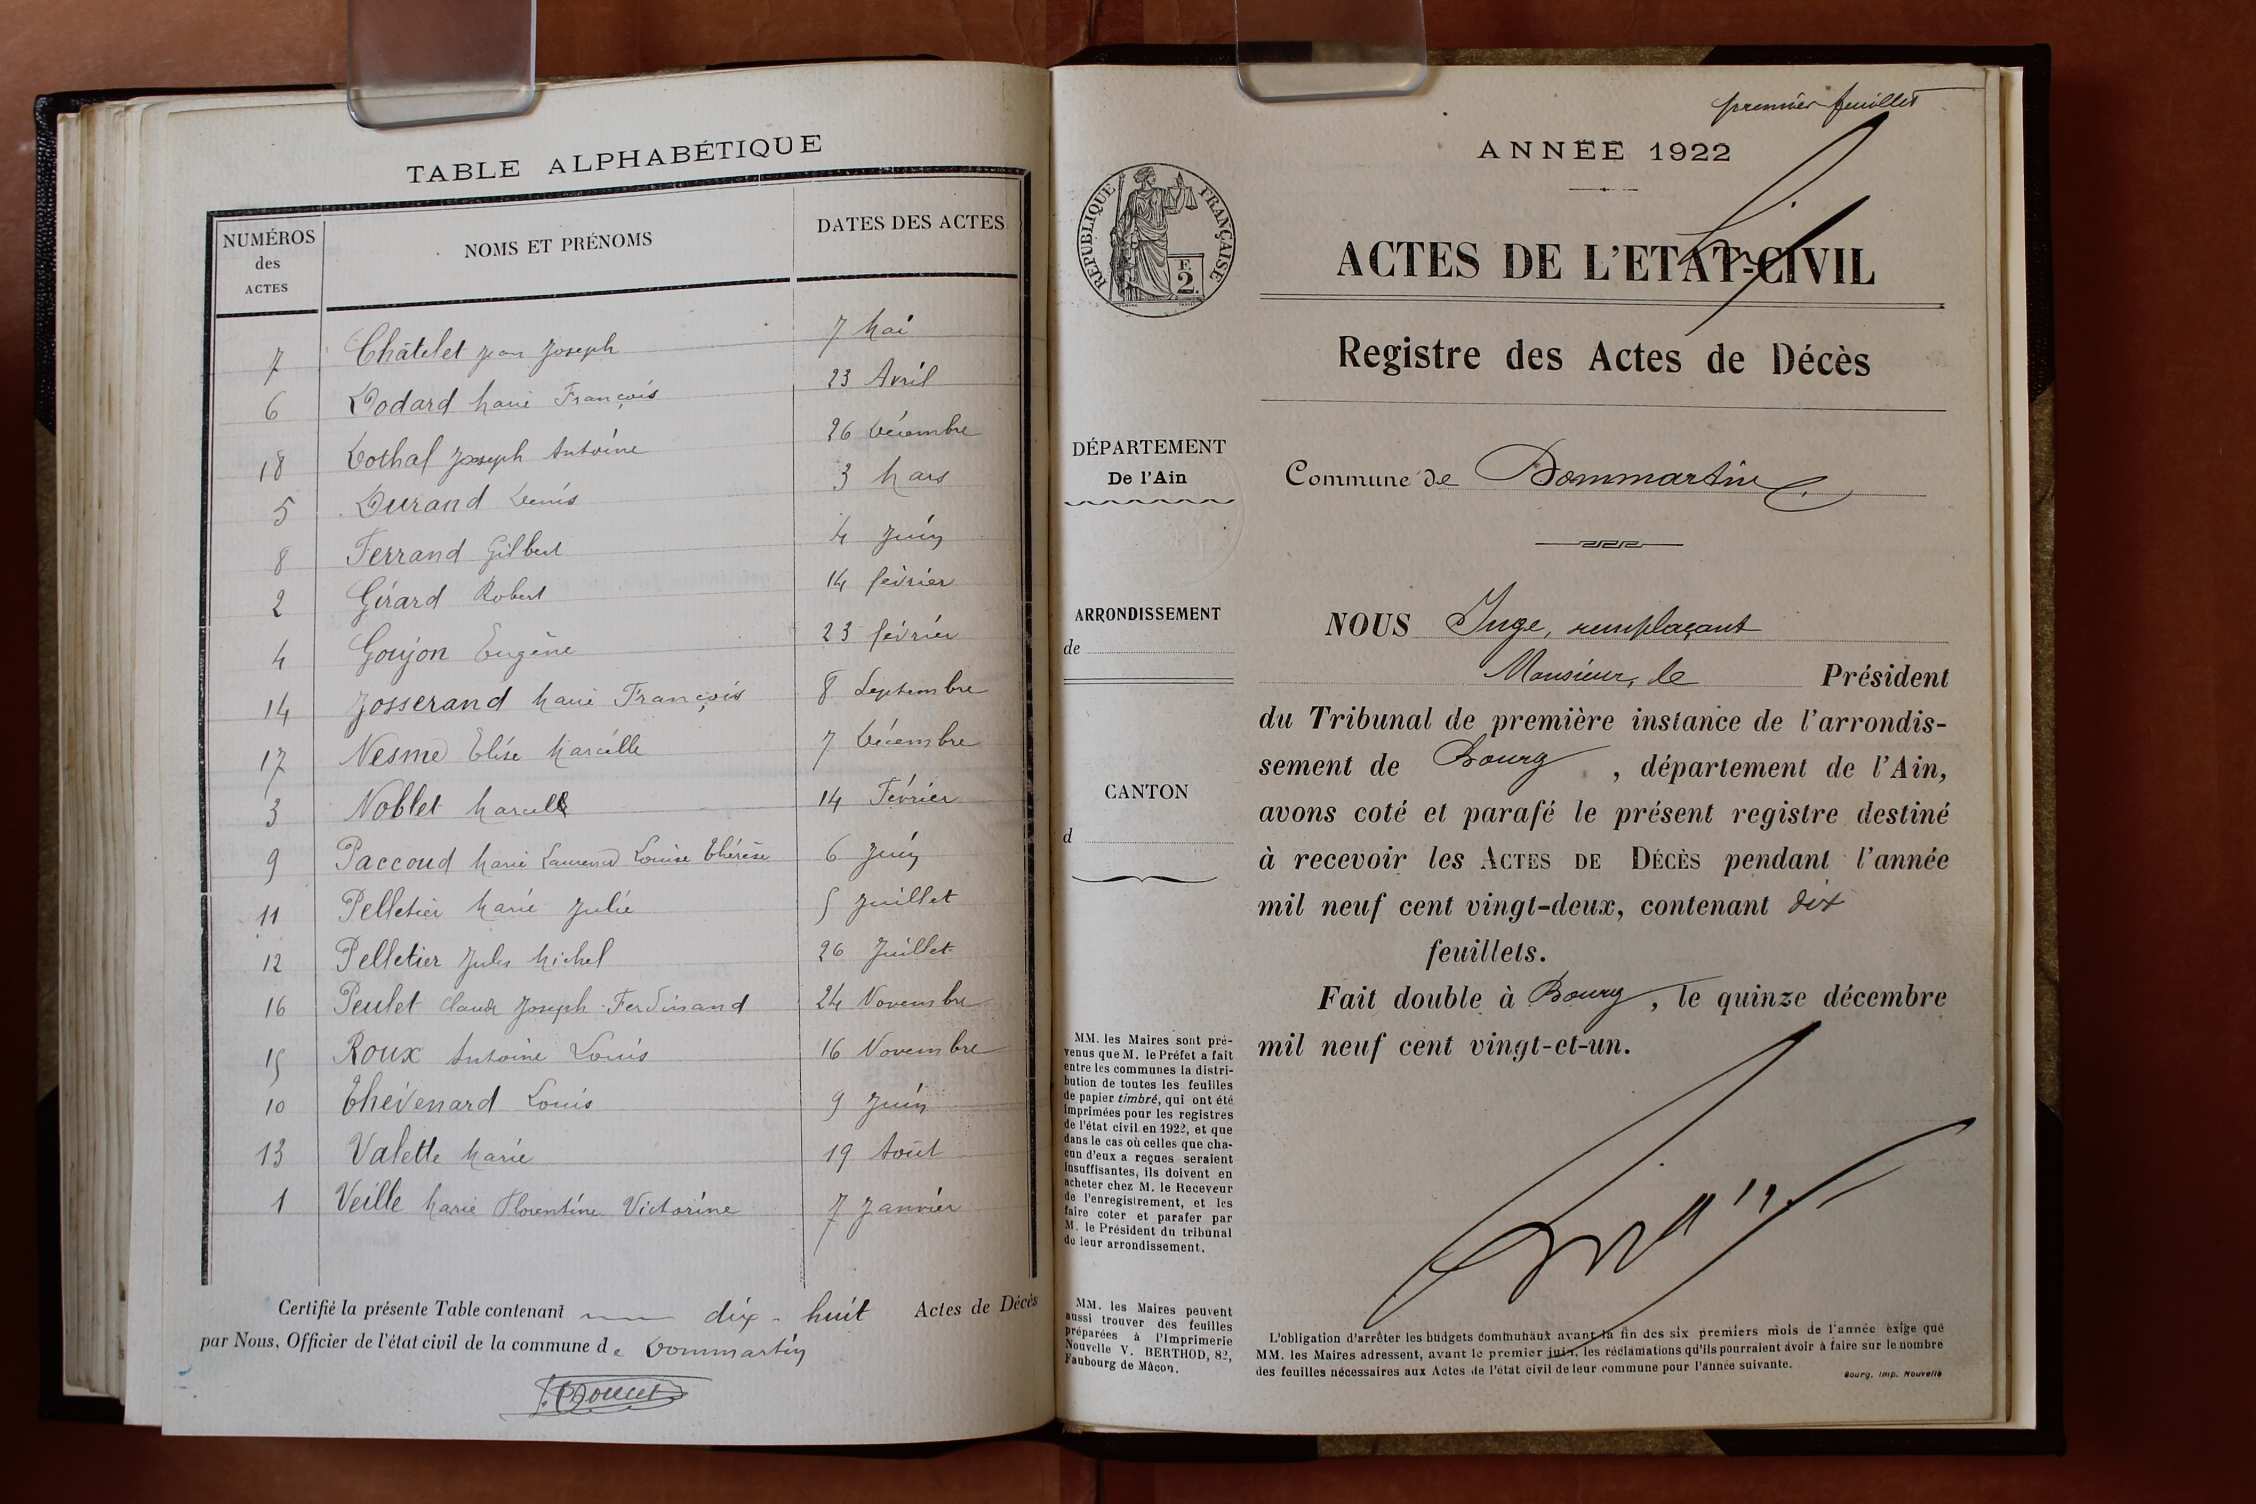 TABLE ALPHABÉTIQUE
NUMÉROS des ACTES NOMS ET PRÉNOMS DATES DES ACTES
7 Châtelet Jean Joseph 7 Mai
6 Dodard Marie François 23 Avril
18 Dothal Joseph Antoine 26 Décembre
5 Durand Denis 3 Mars
8 Ferrand Gilbert 4 Juin
2 Girard Robert 14 février
4 Goujon Eugène 23 février
14 Josserand Marie François 8 Septembre
17 Nesme Elise Marcelle 7 Décembre
3 Noblet Marcel 14 Février
9 Paccoud Marie Laurence Louise Thérèse 6 Juin
11 Pelletier Marie Julie 5 Juillet
12 Pelletier Jules Michel 26 Juillet
16 Peulet Claude Joseph Ferdinand 24 Novembre
15 Roux Antoine Louis 16 Novembre
10 Thévenard Louis 9 Juin
13 Valette Marie 19 Août
1 Veille Marie Florentine Victorine 7 Janvier
Certifié la présente Table contenant dix-huit Actes de Décès
par Nous, Officier de l'état civil de la commune de Dommartin
premier feuillet
ANNÉE 1922
RÉPUBLIQUE FRANÇAISE
F.
2.
ACTES DE L'ETAT-CIVIL
Registre des Actes de Décès
DÉPARTEMENT
De l'Ain
Commune de Dommartin
ARRONDISSEMENT
de
CANTON
d
NOUS Juge, remplaçant
Monsieur, le Président
du Tribunal de première instance de l'arrondis-
sement de Bourg, département de l'Ain,
avons coté et parafé le présent registre destiné
à recevoir les ACTES DE DÉCÈS pendant l'année
mil neuf cent vingt-deux, contenant dix
feuillets.
Fait double à Bourg, le quinze décembre
mil neuf cent vingt-et-un.
MM. les Maires sont pré-
venus que M. le Préfet a fait
entre les communes la distri-
bution de toutes les feuilles
de papier timbré, qui ont été
imprimées pour les registres
de l'état civil en 1922, et que
dans le cas où celles que cha-
cun d'eux a reçues seraient
insuffisantes, ils doivent en
acheter chez M. le Receveur
de l'enregistrement, et les
faire coter et parafer par
M. le Président du tribunal
de leur arrondissement.
MM. les Maires peuvent
aussi trouver des feuilles
préparées à l'Imprimerie
Nouvelle V. BERTHOD, 82,
Faubourg de Mâcon.
L'obligation d'arrêter les budgets communaux avant la fin des six premiers mois de l'année exige que
MM. les Maires adressent, avant le premier juin, les réclamations qu'ils pourraient avoir à faire sur le nombre
des feuilles nécessaires aux Actes de l'état civil de leur commune pour l'année suivante.
Bourg, Imp. Nouvelle